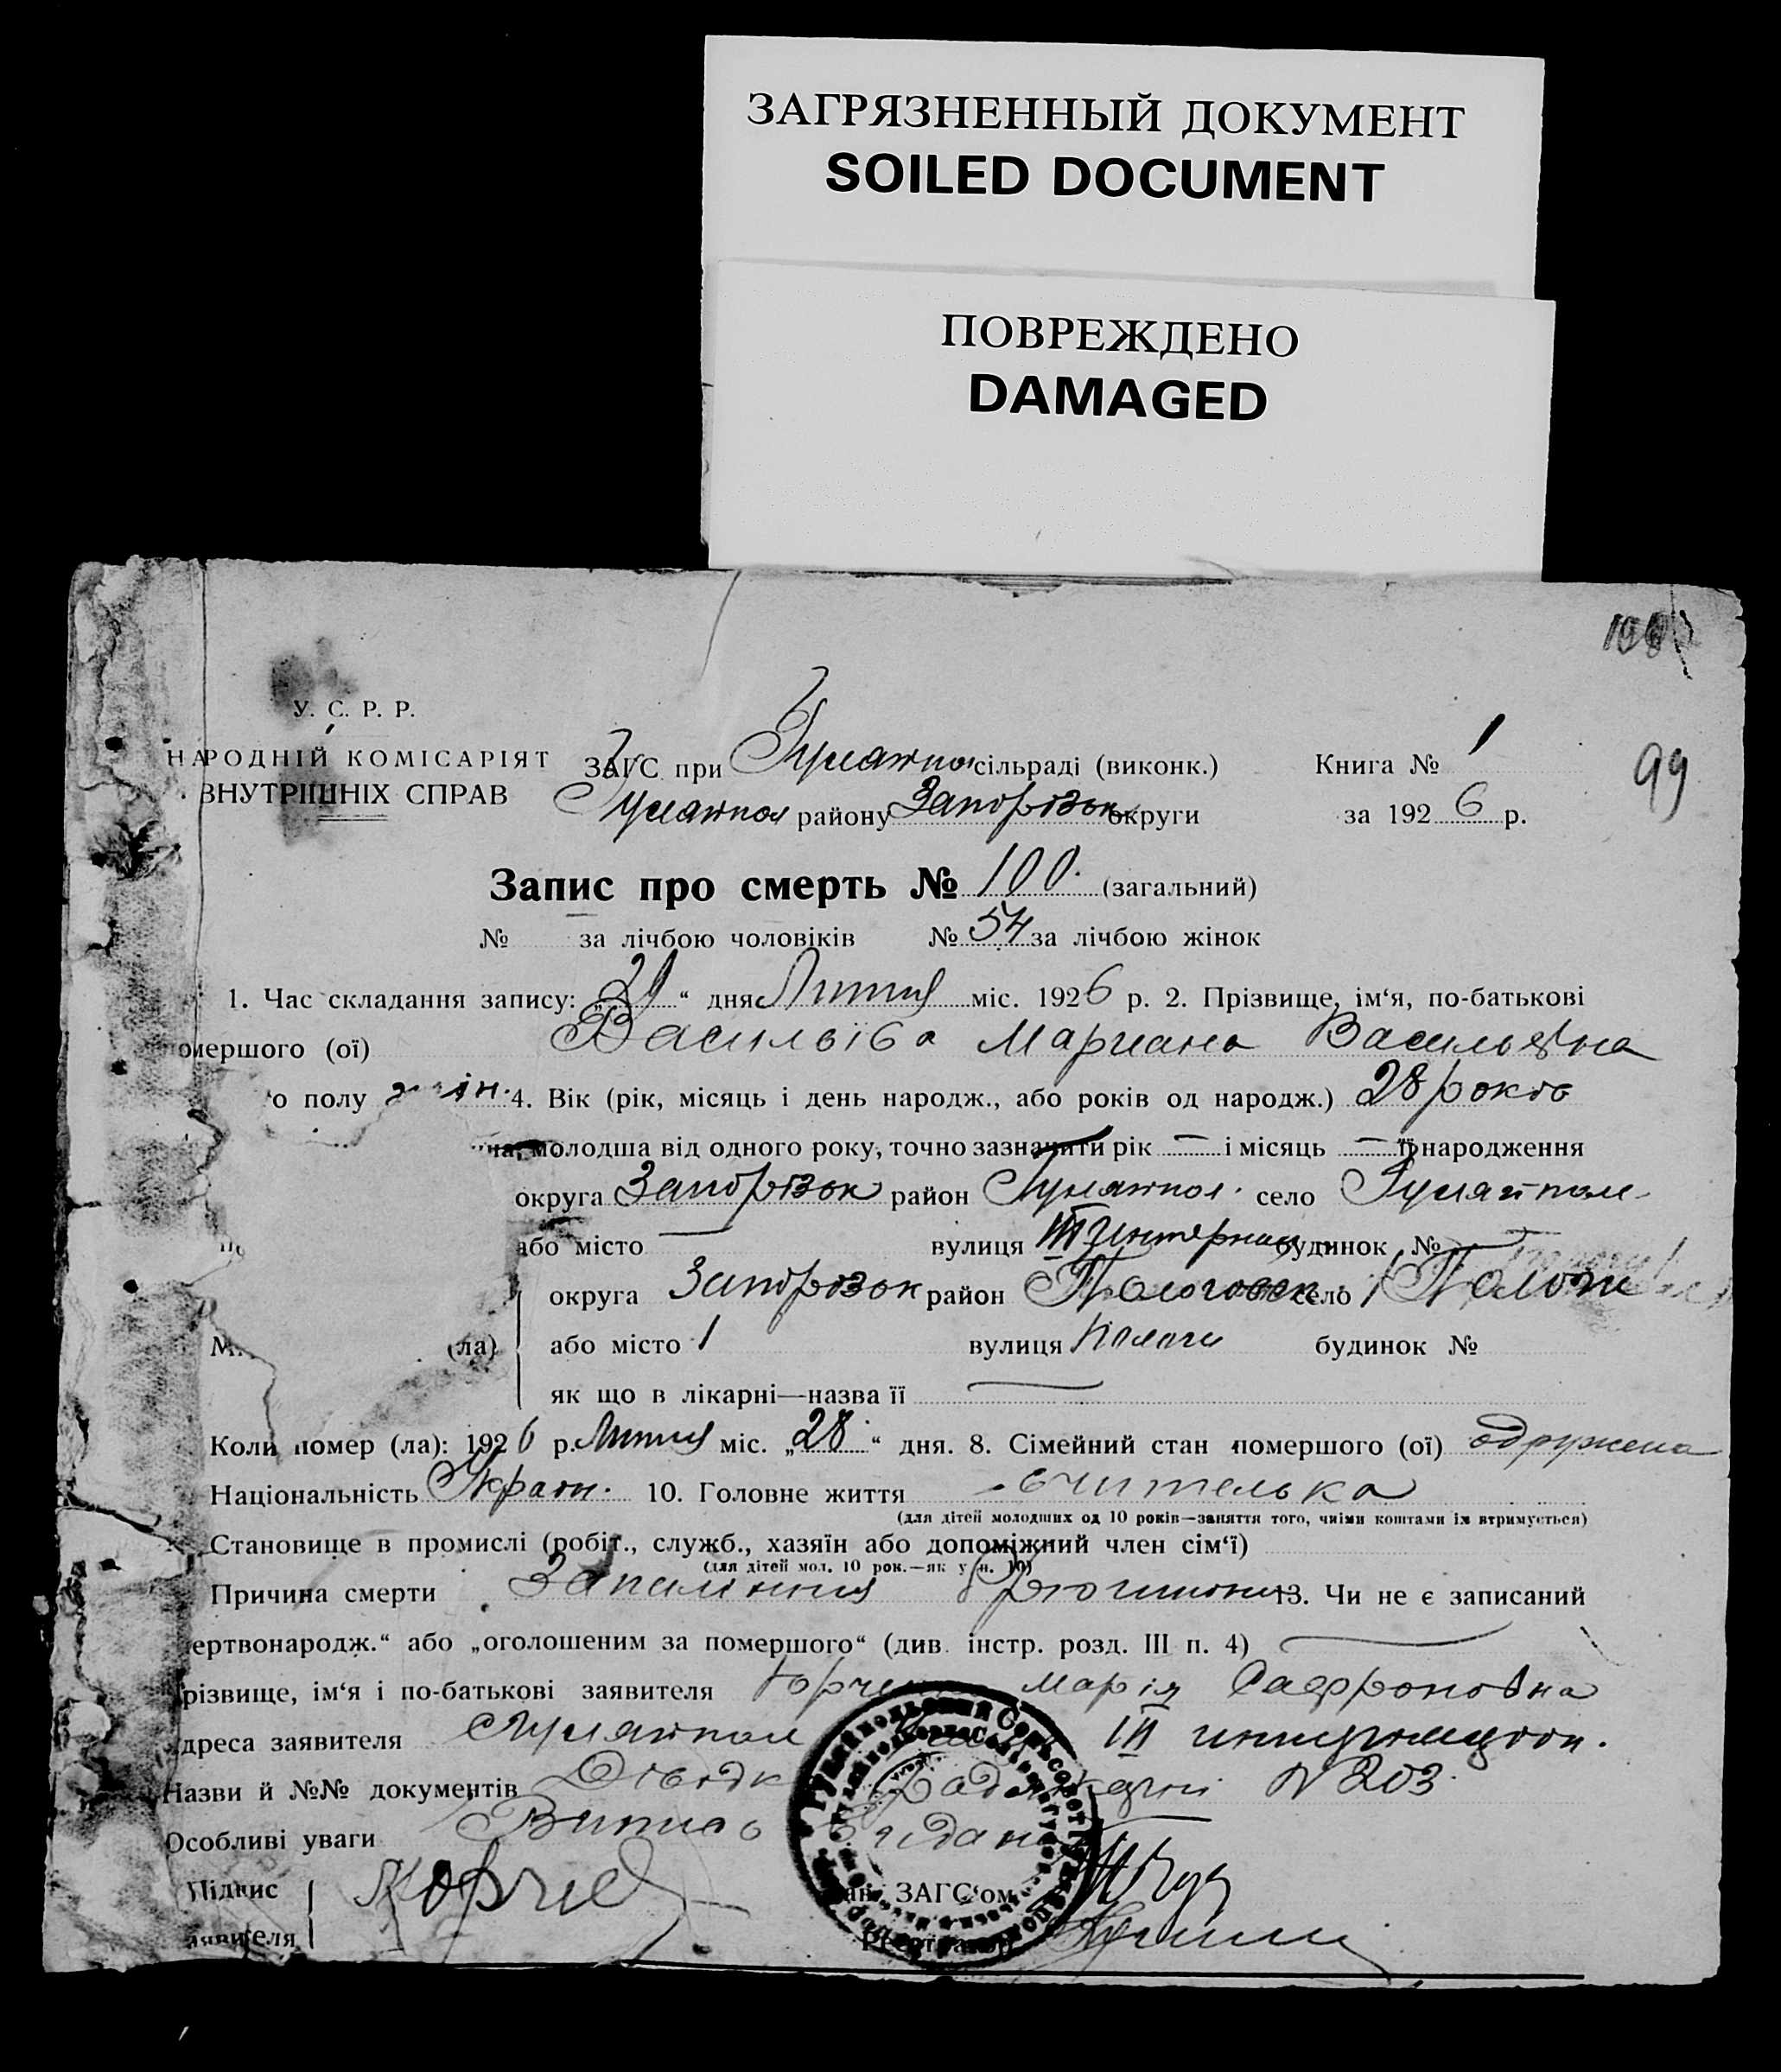 ЗАГРЯЗНЕННЫЙ ДОКУМЕНТ
SOILED DOCUMENT
ПОВРЕЖДЕНО
DAMAGED
У. С. Р. Р.
НАРОДНІЙ КОМІСАРІЯТ
ВНУТРІШНІХ СПРАВ
ЗАГС при Гуляйпол сільраді (виконк.) Книга № 1
99
Гуляйпол району Запорізьк округи за 1926 р.
Запис про смерть № 100 (загальний)
№ за лічбою чоловіків № 54 за лічбою жінок
1. Час складання запису: „29“ дня Липня міс. 1926 р. 2. Прізвище, ім‘я, по-батькові
омершого (ої) Васильіва Мариана Васильевна
‘о полу жін. 4. Вік (рік, місяць і день народж., або років од народж.) 28 років
на, молодша від одного року, точно зазначити рік — і місяць — її народження
округа Запорізьк район Гуляйпол. село Гуляйполе
або місто — вулиця III Интернац будинок №
округа Запорізьк район Пологовск село Пологи
(ла) або місто вулиця Пологи будинок №
як що в лікарні—назва її —
Коли помер (ла): 1926 р. Липня міс. „28“ дня. 8. Сімейний стан помершого (ої) одружена
Національність Украін. 10. Головне життя учителька
(для дітей молодших од 10 років—заняття того, чиїми коштами їх втримується)
Становище в промислі (робіт., служб., хазяїн або допоміжний член сім‘ї)
(для дітей мол. 10 рок.—як у п. 10)
Причина смерти Запалення брюшини 13. Чи не є записаний
ертвонародж.“ або „оголошеним за помершого“ (див. інстр. розд. III п. 4) —
різвище, ім‘я і по-батькові заявителя Марія Сафроновна
дреса заявителя Гуляйпол III интернацион.
Назви й №№ документів Довідк N 203
Особливі уваги Витис видано
Підпис
аявителя
Зав. ЗАГС‘ом
Реєстратор